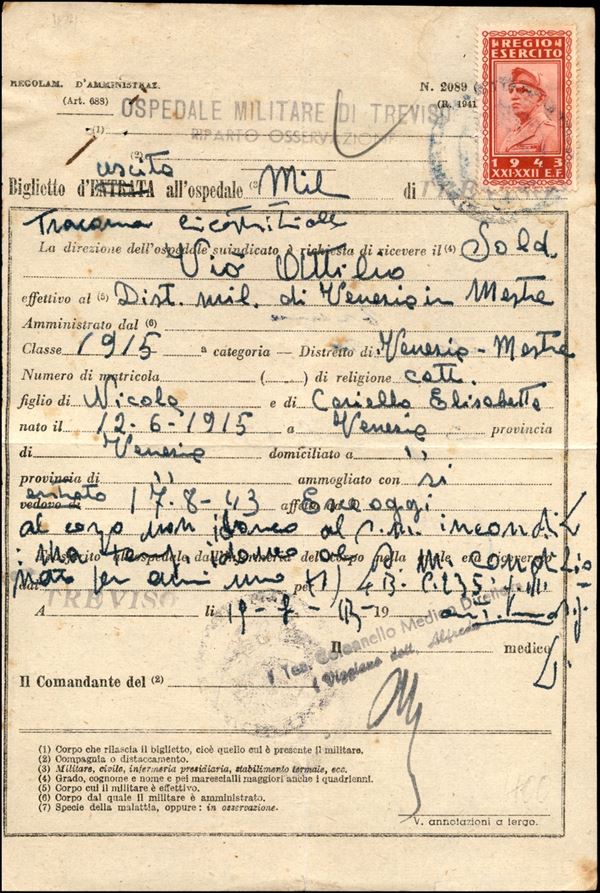 REGIO
ESERCITO
1943
XXI-XXII E.F.
REGOLAM. D'AMMINISTRAZ.
(Art. 688)
N. 2089
(R. 1941
OSPEDALE MILITARE DI TREVISO
RIPARTO OSSERVAZIONE
(1)
(2)
uscita
Biglietto d'ENTRATA all'ospedale (3) Mil di TREVISO
Tracoma cicatriziale
La direzione dell'ospedale suindicato è richiesta di ricevere il (4) Sold.
Vio Attilio
effettivo al (5) Dist. mil. di Venezia in Mestre
Amministrato dal (6)
Classe 1915 a categoria — Distretto di Venezia - Mestre
Numero di matricola ( ) di religione catt.
figlio di Nicola e di Cariello Elisabetta
nato il 12-6-1915 a Venezia provincia
di Venezia domiciliato a "
provincia di " ammogliato con si
entrato
vedovo di 17-8-43 affetto da Esce oggi
al corpo non idoneo al S.M. incondiz
ma idoneo al S. M. condizio
nato per anni uno
TREVISO
A li 19
I Ten. Colonnello Medico Direttore
Viggiano dott. Alfredo
Il medico
Il Comandante del (2)
(1) Corpo che rilascia il biglietto, cioè quello cui è presente il militare.
(2) Compagnia o distaccamento.
(3) Militare, civile, infermeria presidiaria, stabilimento termale, ecc.
(4) Grado, cognome e nome e pei marescialli maggiori anche i quadrienni.
(5) Corpo cui il militare è effettivo.
(6) Corpo dal quale il militare è amministrato.
(7) Specie della malattia, oppure: in osservazione.
V. annotazioni a tergo.